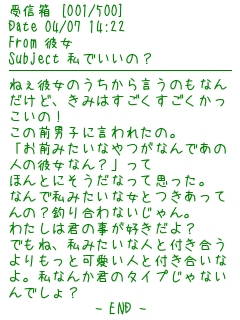 受信箱 [001/500]
Date 04/07 14:22
From 彼女
Subject 私でいいの？
ねぇ彼女のうちから言うのもなん
だけど、きみはすごくすごくかっ
こいの！
この前男子に言われたの。
「お前みたいなやつがなんであの
人の彼女なん？」って
ほんとにそうだなって思った。
なんで私みたいな女とつきあって
んの？釣り合わないじゃん。
わたしは君の事が好きだよ？
でもね、私みたいな人と付き合う
よりもっと可愛い人と付き合いな
よ。私なんか君のタイプじゃない
んでしょ？
- END -